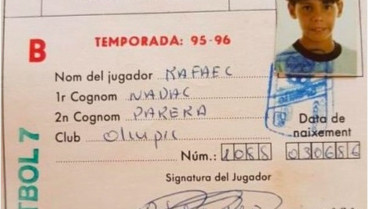 B TEMPORADA: 95-96
Nom del jugador RAFAEL
1r Cognom NADAL
2n Cognom PARERA
Club Olimpic
Data de naixement
Núm.: 1088 030686
Signatura del Jugador
TBOL 7